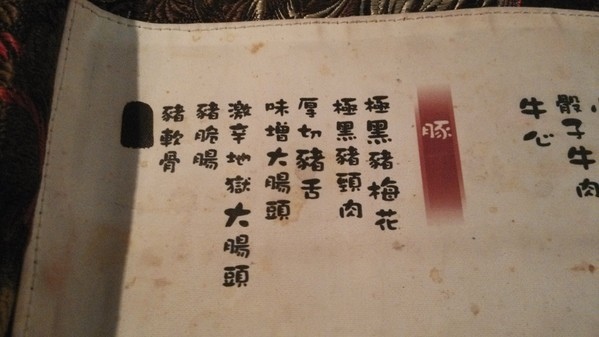 骰子牛肉
牛心
豚
極黑豬梅花
極黑豬頸肉
厚切豬舌
味增大腸頭
激辛地獄大腸頭
豬脆腸
豬軟骨